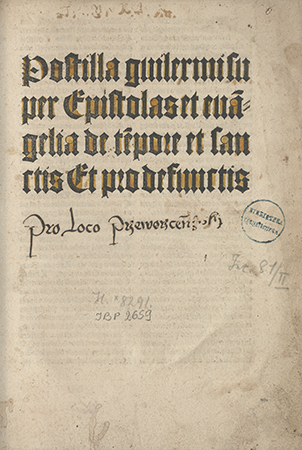 Postilla guilermi su
per Epistolas et euā-
gelia de tēpore et san
ctis Et pro defunctis
Pro Loco
Inc. 81/II
H. *8291.
IBP 2659